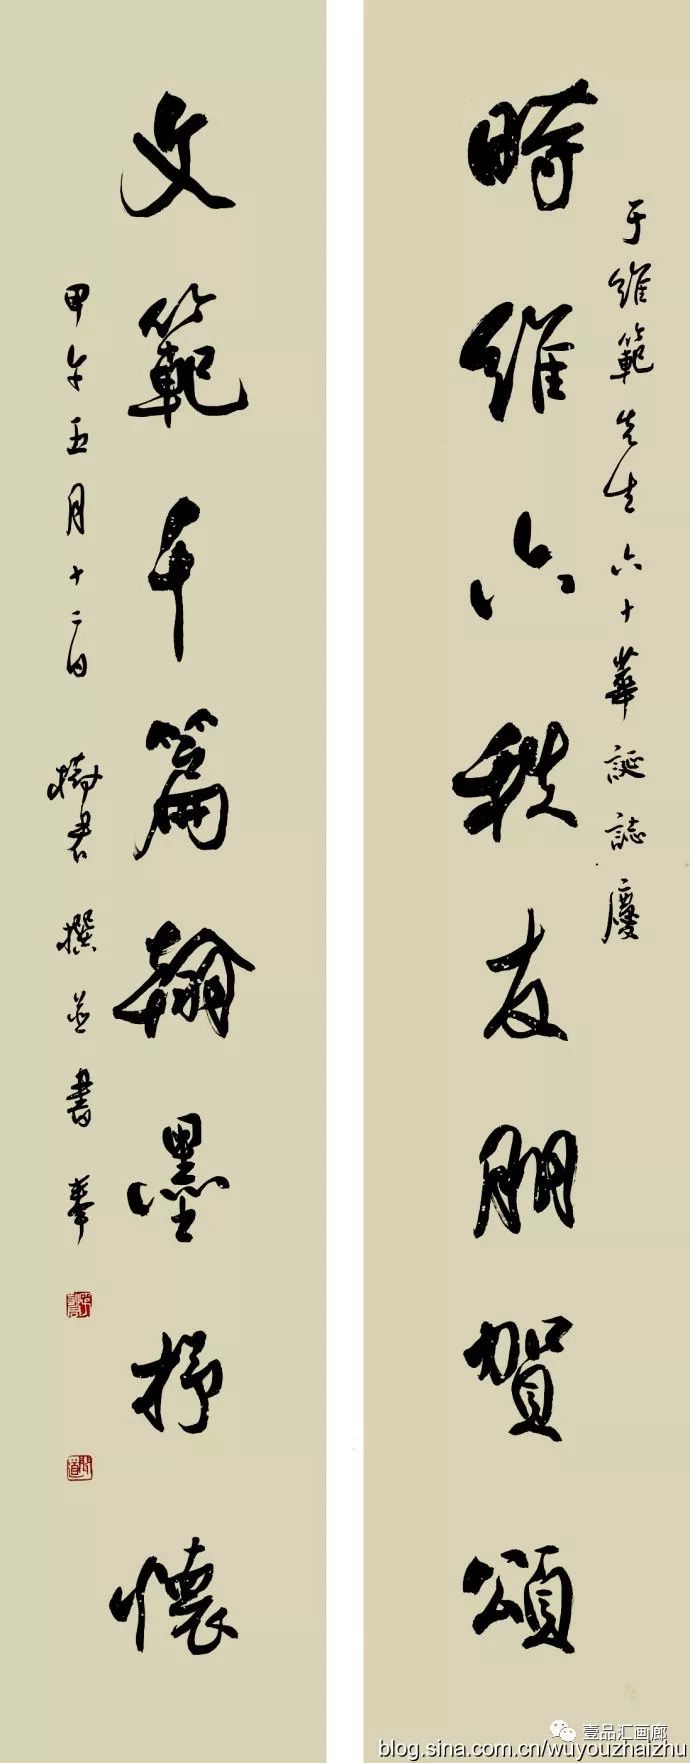 于維範先生六十華誕誌慶
時維六秩友朋賀頌
文範千篇翰墨抒懷
甲午五月十二日 樹君撰並書奉
壹品汇画廊
blog.sina.com.cn/wuyouzhaizhu